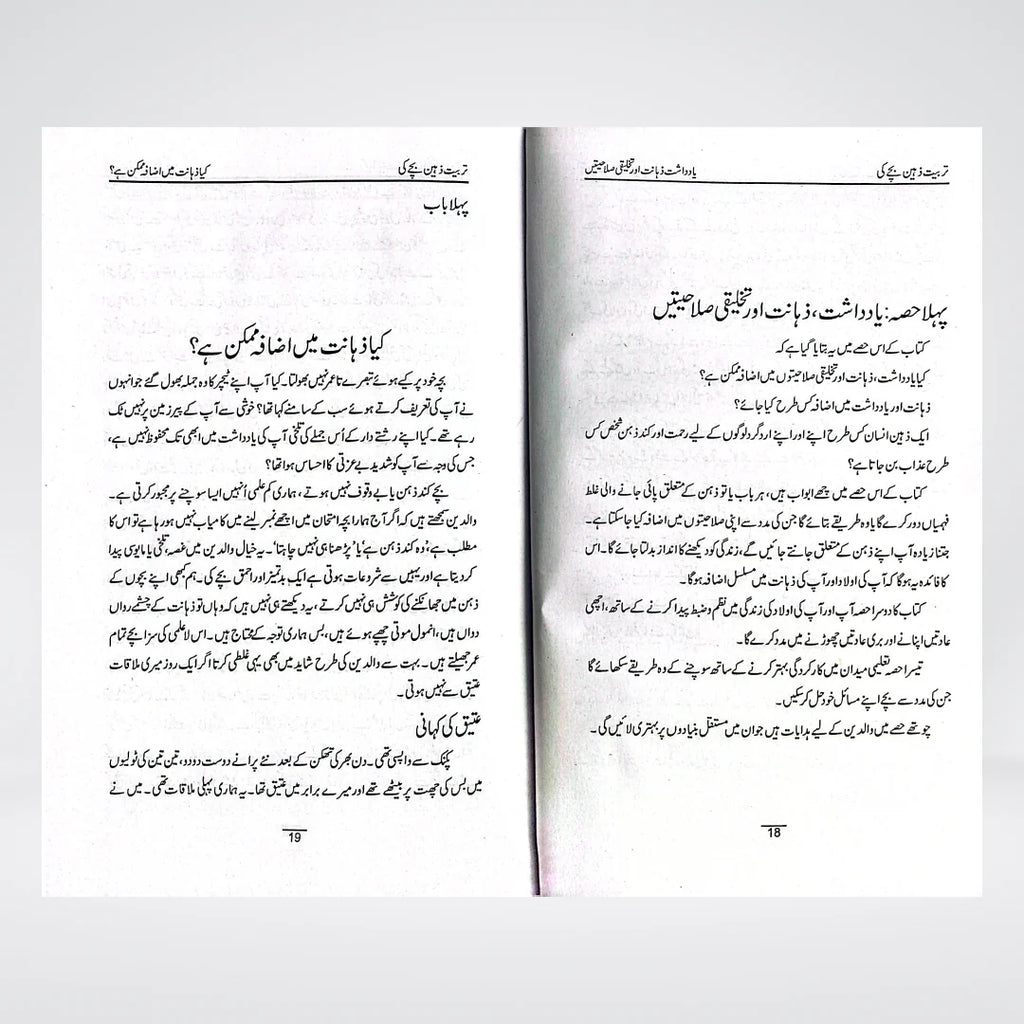 تربیت ذہین بچے کی
یادداشت ذہانت اور تخلیقی صلاحیتیں
پہلا حصہ: یادداشت، ذہانت اور تخلیقی صلاحیتیں
کتاب کے اس حصے میں یہ بتایا گیا ہے کہ
کیا یادداشت، ذہانت اور تخلیقی صلاحیتوں میں اضافہ ممکن ہے؟
ذہانت اور یادداشت میں اضافہ کس طرح کیا جائے؟
ایک ذہین انسان کس طرح اپنے اور اپنے اردگرد لوگوں کے لیے رحمت اور کند ذہن شخص کس
طرح عذاب بن جاتا ہے؟
کتاب کے اس حصے میں چھے ابواب ہیں، ہر باب یا تو ذہن کے متعلق پائی جانے والی غلط
فہمیاں دور کرے گا یا وہ طریقے بتائے گا جن کی مدد سے اپنی صلاحیتوں میں اضافہ کیا جا سکتا ہے۔
جتنا زیادہ آپ اپنے ذہن کے متعلق جانتے جائیں گے، زندگی کو دیکھنے کا انداز بدلتا جائے گا۔ اس
کا فائدہ یہ ہوگا کہ آپ کی اولاد اور آپ کی ذہانت میں مسلسل اضافہ ہوگا۔
کتاب کا دوسرا حصہ آپ اور آپ کی اولاد کی زندگی میں نظم و ضبط پیدا کرنے کے ساتھ، اچھی
عادتیں اپنانے اور بری عادتیں چھوڑنے میں مدد کرے گا۔
تیسرا حصہ تعلیمی میدان میں کارکردگی بہتر کرنے کے ساتھ سوچنے کے وہ طریقے سکھائے گا
جن کی مدد سے بچے اپنے مسائل خود حل کر سکیں۔
چوتھے حصے میں والدین کے لیے ہدایات ہیں جو ان میں مستقل بنیادوں پر بہتری لائیں گی۔
18
تربیت ذہین بچے کی
کیا ذہانت میں اضافہ ممکن ہے؟
پہلا باب
کیا ذہانت میں اضافہ ممکن ہے؟
بچہ خود پر کیے ہوئے تبصرے تا عمر نہیں بھولتا۔ کیا آپ اپنے ٹیچر کا وہ جملہ بھول گئے جو انہوں
نے آپ کی تعریف کرتے ہوئے سب کے سامنے کہا تھا؟ خوشی سے آپ کے پیر زمین پر نہیں ٹک
رہے تھے۔ کیا اپنے رشتے دار کے اُس جملے کی تلخی آپ کی یادداشت میں ابھی تک محفوظ نہیں ہے،
جس کی وجہ سے آپ کو شدید بے عزتی کا احساس ہوا تھا؟
بچے کند ذہن یا بے وقوف نہیں ہوتے، ہماری کم علمی اُنہیں ایسا سوچنے پر مجبور کرتی ہے۔
والدین سمجھتے ہیں کہ اگر آج ہمارا بچہ امتحان میں اچھے نمبر لینے میں کامیاب نہیں ہو رہا ہے تو اس کا
مطلب ہے، ’وہ کند ذہن ہے‘ یا ’پڑھنا ہی نہیں چاہتا‘۔ یہ خیال والدین میں غصہ، تلخی یا مایوسی پیدا
کر دیتا ہے اور یہیں سے شروعات ہوتی ہے ایک بدتمیز اور احمق بچے کی۔ ہم کبھی اپنے بچوں کے
ذہن میں جھانکنے کی کوشش ہی نہیں کرتے، یہ دیکھتے ہی نہیں ہیں کہ وہاں تو ذہانت کے چشمے رواں
دواں ہیں، انمول موتی چھپے ہوئے ہیں، بس ہماری توجہ کے محتاج ہیں۔ اس لا علمی کی سزا بچے تمام
عمر جھیلتے ہیں۔ بہت سے والدین کی طرح شاید میں بھی یہی غلطی کرتا اگر ایک روز میری ملاقات
عتیق سے نہیں ہوتی۔
عتیق کی کہانی
پکنک سے واپسی تھی۔ دن بھر کی تھکن کے بعد نئے پرانے دوست دو دو، تین تین کی ٹولیوں
میں بس کی چھت پر بیٹھے تھے اور میرے برابر میں عتیق تھا۔ یہ ہماری پہلی ملاقات تھی۔ میں نے
19